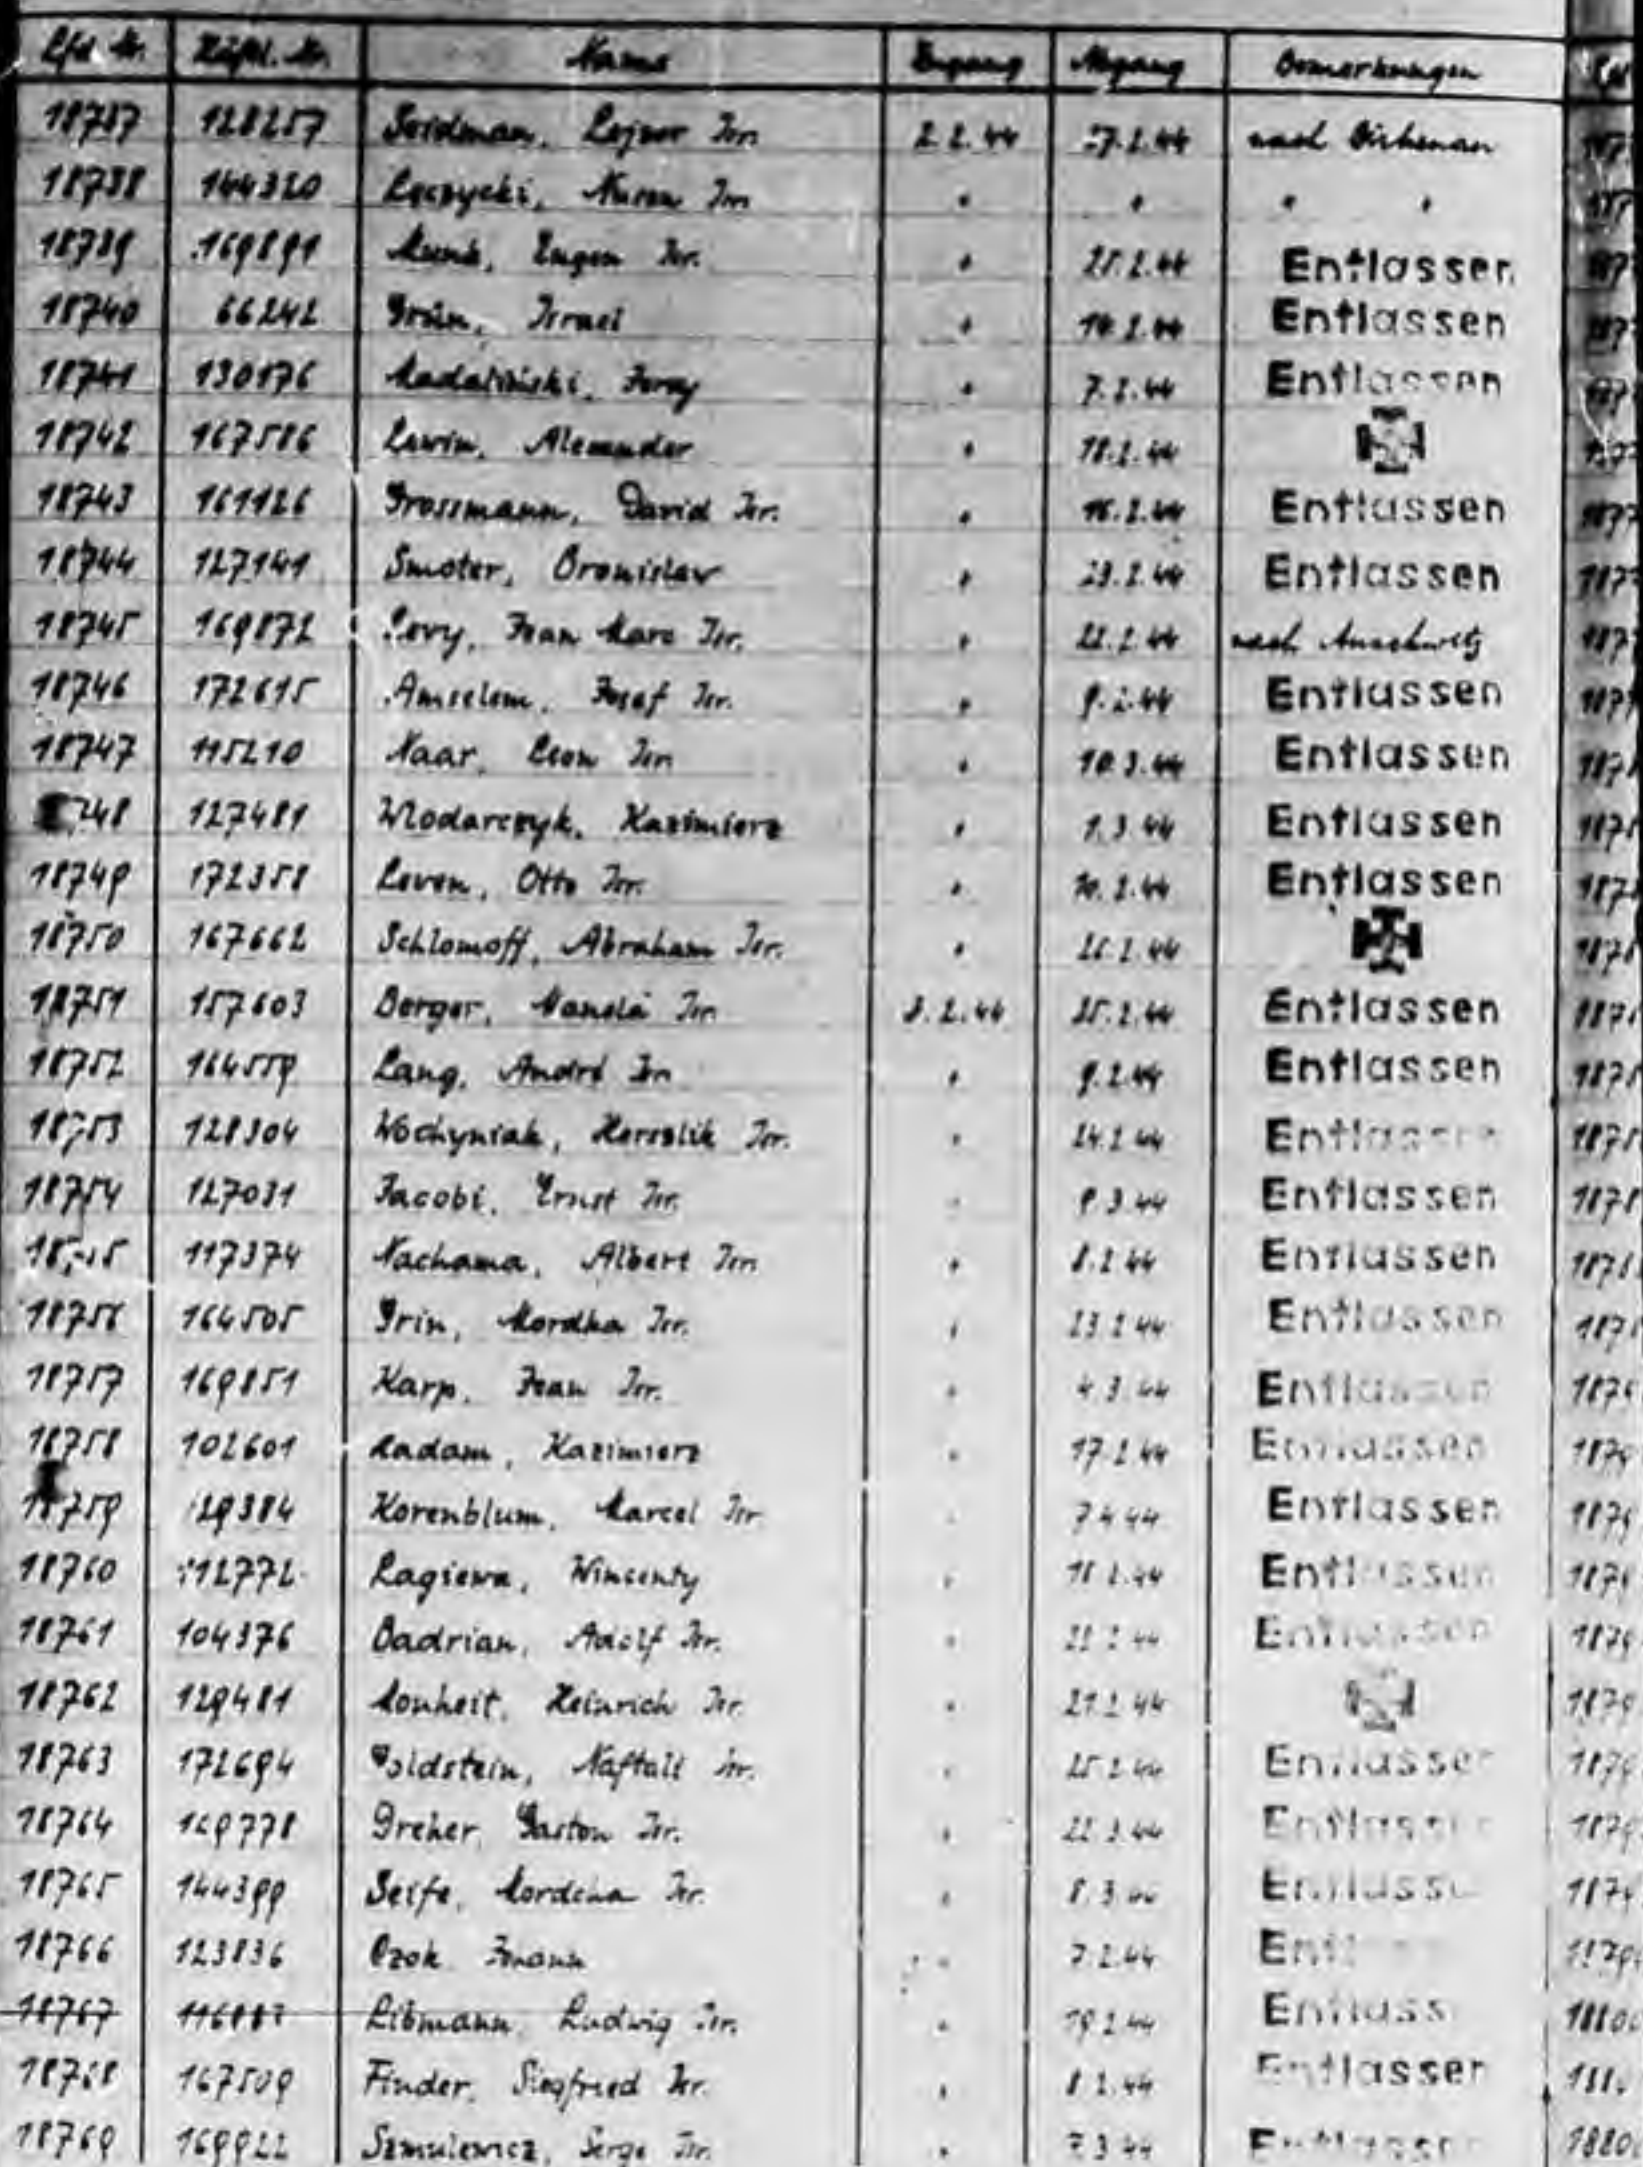 Lfd. Nr. Häftl. Nr. Name Zugang Abgang Bemerkungen
18737 128257 Seidman, Lejzor Isr. 2.2.44 27.2.44 nach Birkenau
18738 144320 Isr. " " " "
18739 169891 Munk, Eugen Isr. " 2.44 Entlassen
18740 66242 Grün, Israel " 2.44 Entlassen
18741 130176 " 7.2.44 Entlassen
18742 167586 Lewin, Alexander " 18.2.44
18743 161126 Grossmann, David Isr. " 16.2.44 Entlassen
18744 127141 Smoter, Bronislav " 2.44 Entlassen
18745 169872 Levy, Jean Marc Isr. " 22.2.44 nach Auschwitz
18746 172615 Amselem, Josef Isr. " 9.2.44 Entlassen
18747 115210 Naar, Leon Isr. " 10.3.44 Entlassen
127481 Wlodarczyk, Kazimierz " 1.3.44 Entlassen
18749 172358 Leven, Otto Isr. " 10.2.44 Entlassen
18750 167662 Schlomoff, Abraham Isr. " 2.44
18751 157603 Berger, Isr. 3.2.44 25.2.44 Entlassen
18752 164559 Lang, André Isr. " 9.2.44 Entlassen
18753 128304 Wochyniak, Herszlik Isr. " 24.2.44 Entlassen
18754 127031 Jacobi, Ernst Isr. " 3.44 Entlassen
117374 Nachama, Albert Isr. " 8.2.44 Entlassen
18756 164505 Grin, Mordka Isr. " 23.2.44 Entlassen
18757 169851 Karp, Jean Isr. " 4.3.44 Entlassen
18758 102601 Madam, Kazimierz " 17.2.44 Entlassen
18759 129384 Korenblum, Marcel Isr. " 7.4.44 Entlassen
18760 112772 Lagiewa, Wincenty " 18.2.44 Entlassen
18761 104376 Badrian, Adolf Isr. " 2.44 Entlassen
18762 129481 Monheit, Heinrich Isr. " 21.2.44
18763 172694 Goldstein, Naftali Isr. " 25.2.44 Entlassen
18764 Dreher, Gaston Isr. " 22.3.44 Entlassen
18765 144399 Seife, Mordcha Isr. " 8.3.44 Entlassen
18766 123836 Czok " 7.2.44
18767 Libmann, Ludwig Isr. " 19.2.44 Entlass
18768 167509 Finder, Siegfried Isr. " 8.2.44 Entlassen
18769 169922 Szmulewicz, Serge Isr. " 7.3.44 Entlassen